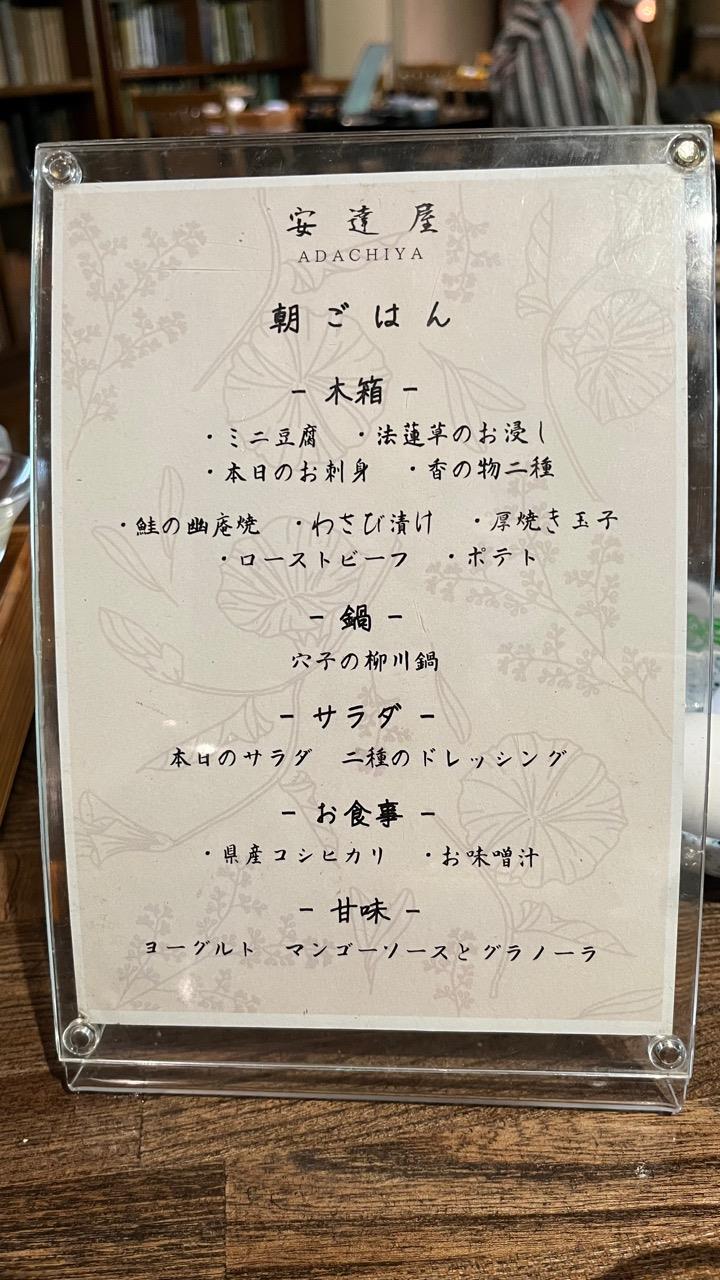 安達屋
ADACHIYA
朝ごはん
− 木箱 −
・ミニ豆腐 ・法蓮草のお浸し
・本日のお刺身 ・香の物二種
・鮭の幽庵焼 ・わさび漬け ・厚焼き玉子
・ローストビーフ ・ポテト
− 鍋 −
穴子の柳川鍋
− サラダ −
本日のサラダ 二種のドレッシング
− お食事 −
・県産コシヒカリ ・お味噌汁
− 甘味 −
ヨーグルト マンゴーソースとグラノーラ